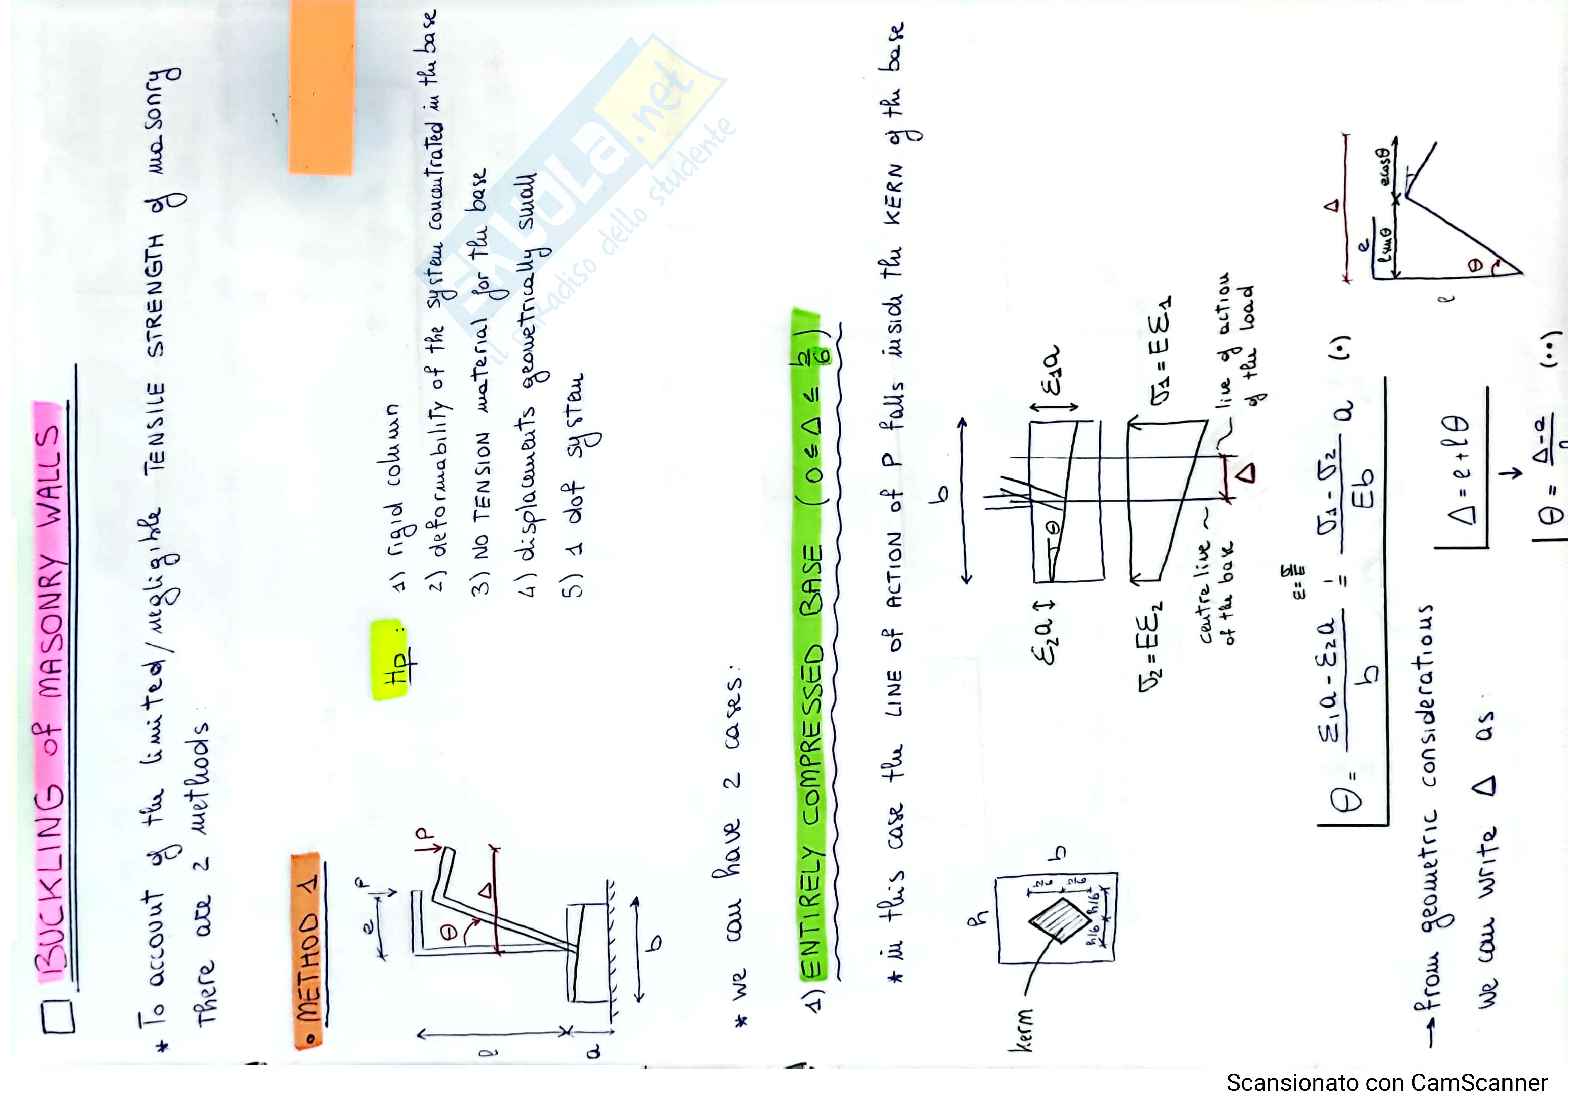 BUCKLING of MASONRY WALLS
* To account of the limited/negligible TENSILE STRENGTH of masonry
There are 2 methods:
• METHOD 1
Hp:
1) rigid column
2) deformability of the system concentrated in the base
3) NO TENSION material for the base
4) displacements geometrically small
5) 1 dof system
e
P
P
θ
Δ
l
a
b
* we can have 2 cases:
1) ENTIRELY COMPRESSED BASE (0 ≤ Δ ≤ b/6)
* in this case the LINE of ACTION of P falls inside the KERN of the base
h
b
b/6 b/6
h/6 h/6
kerm
b
θ
ε2a
ε1a
σ2=Eε2
σ1=Eε1
centre line of the base
Δ
line of action of the load
θ = (ε1a - ε2a)/b = (σ1 - σ2)/(Eb) a (•)
ε=σ/E
→ from geometric considerations
we can write Δ as:
Δ = e + lθ
↓
θ = Δ-e (••)
Δ
e
lsinθ
ecosθ
θ
l
EKUOLA.net
il paradiso dello studente
Scansionato con CamScanner